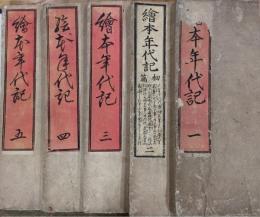 繪本年代記 一
繪本年代記 初篇 二
繪本年代記 三
繪本年代記 四
繪本年代記 五